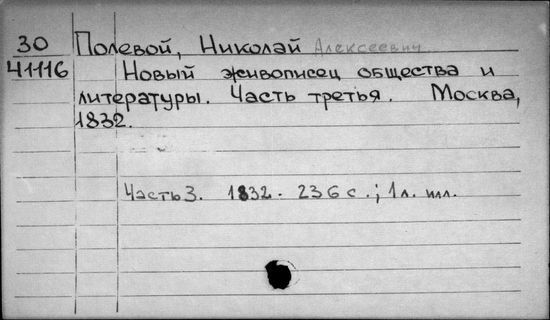 30 Полевой, Николай Алексеевич
41116 Новый живописец общества и
литературы. Часть третья. Москва,
1832.
Часть 3. 1832. 236 с.; 1 л. илл.